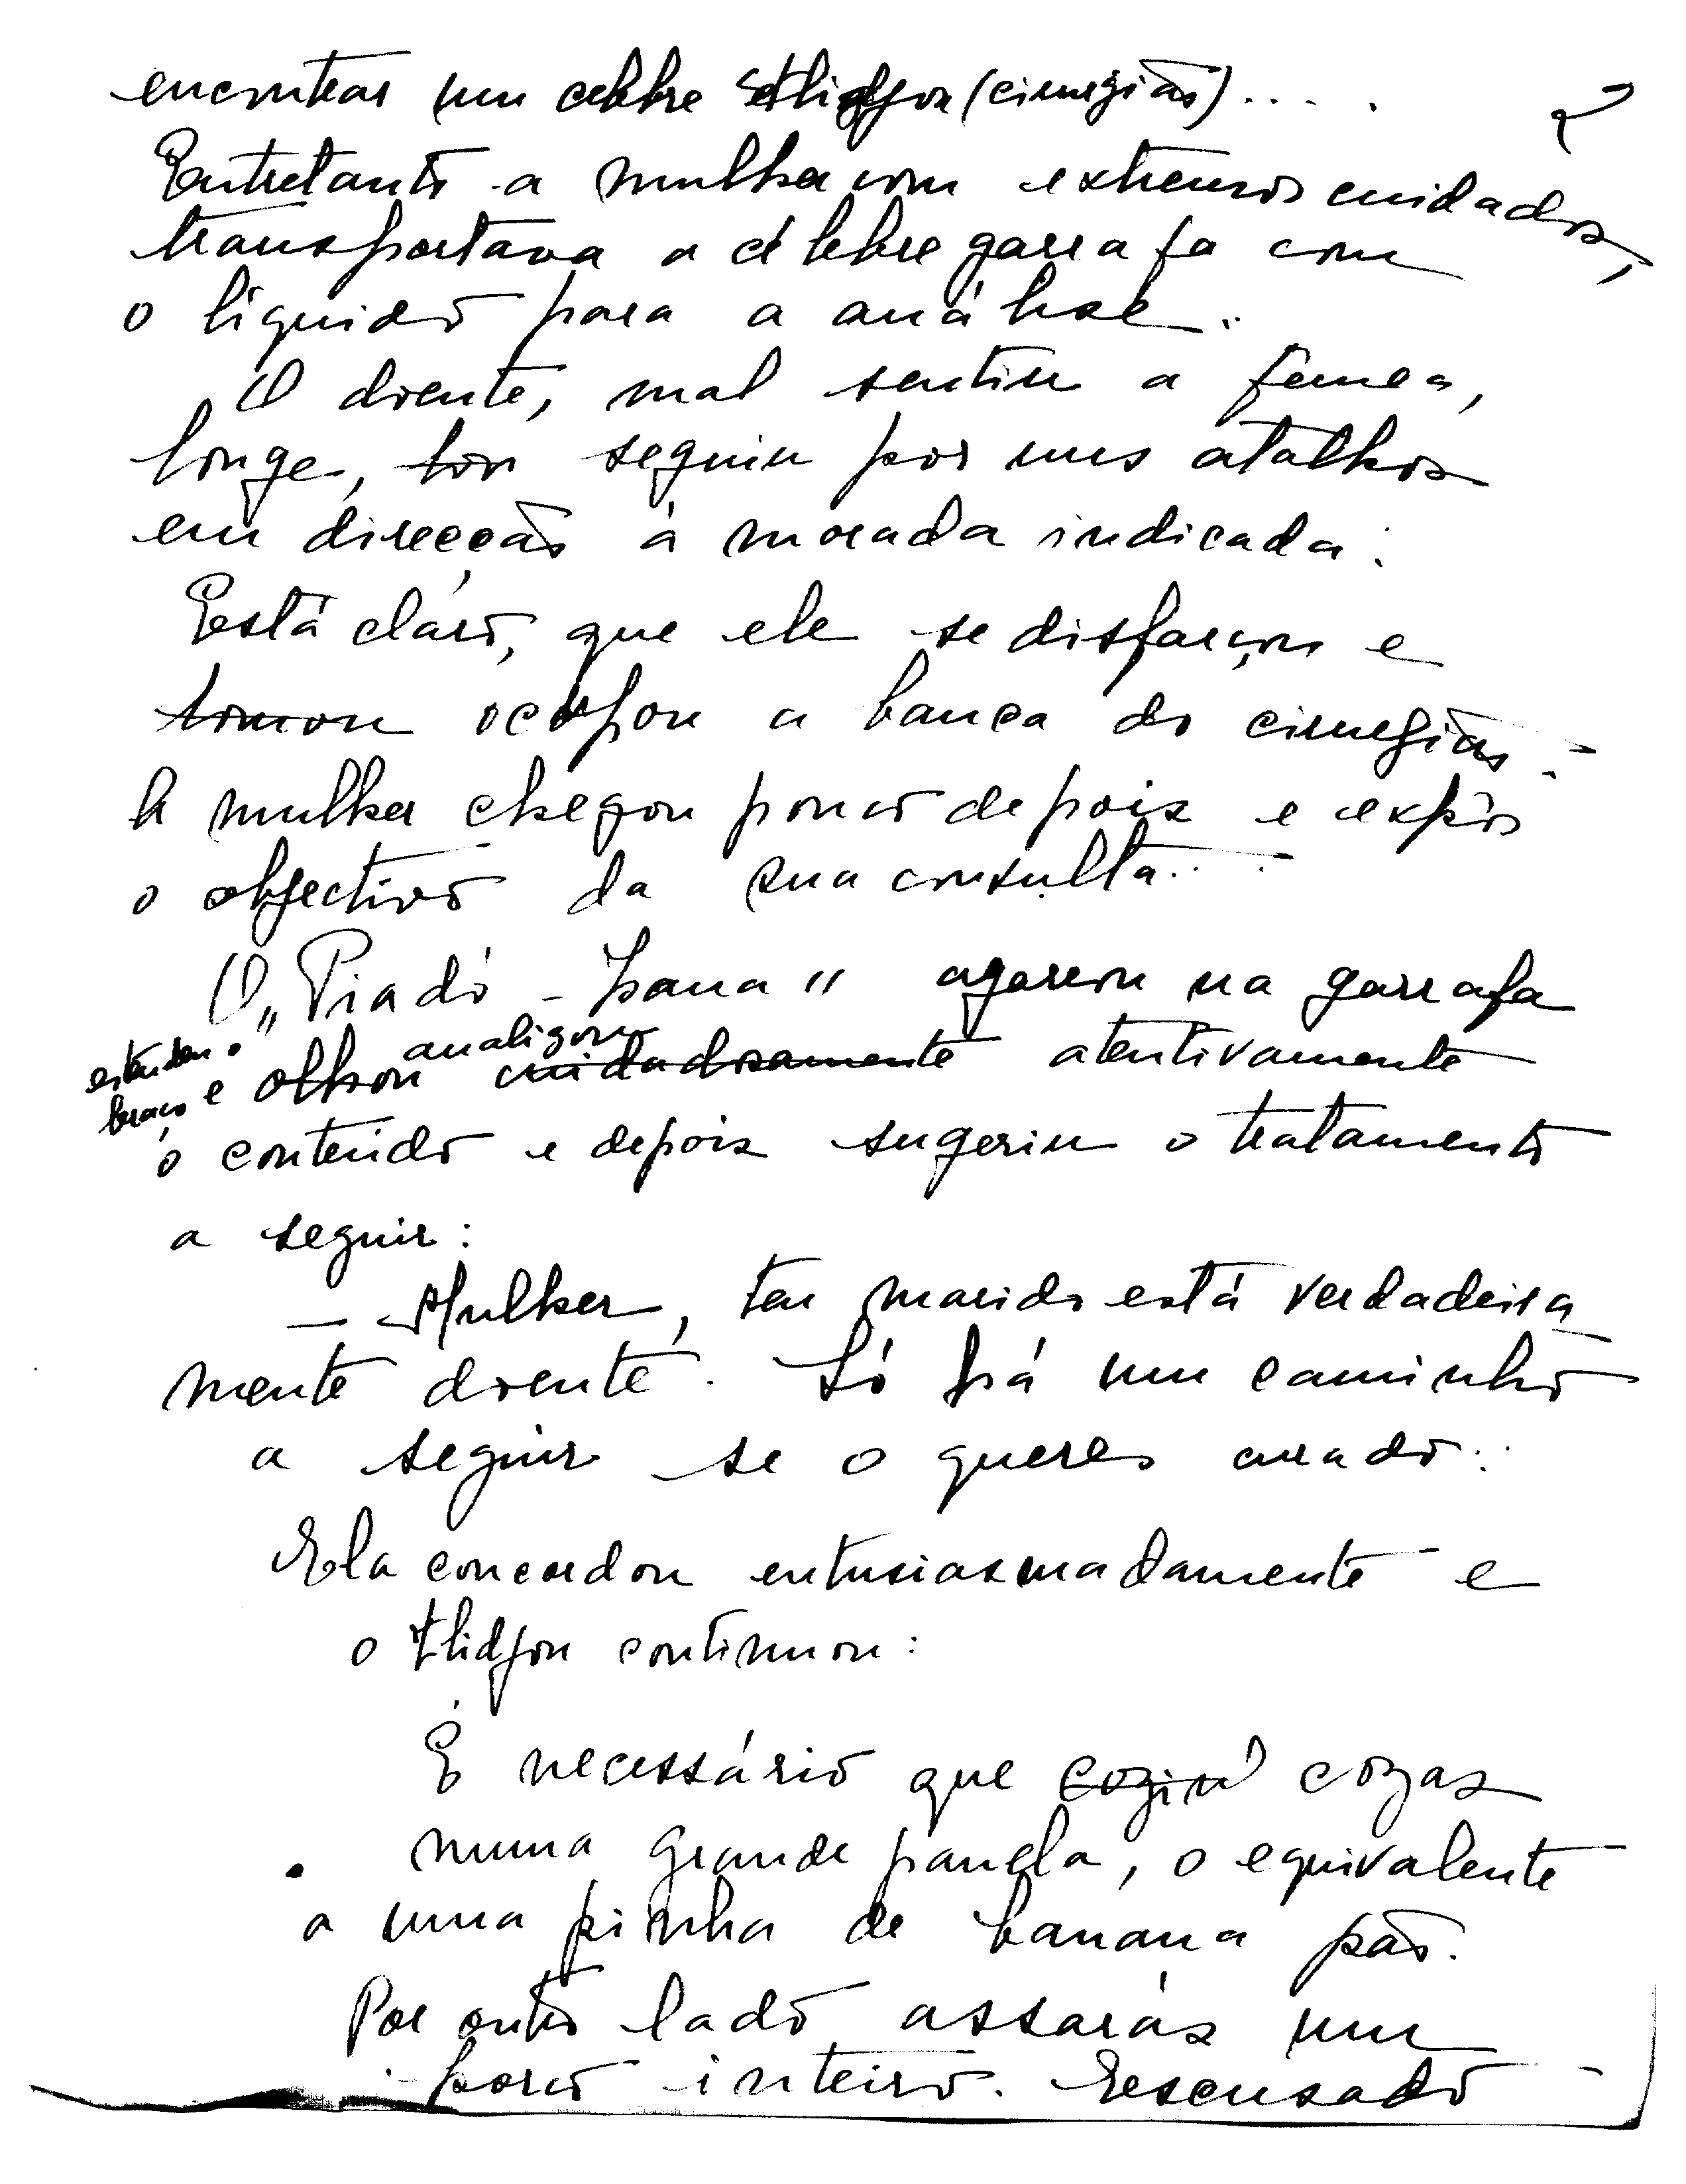 encontrar um celebre (cirurgião)....
2
Entretanto a mulher com extremos cuidados,
transportava a célebre garrafa com
o liquido para a análise.
O doente, mal sentiu a femea,
longe, seguiu por uns atalhos
em direcção à morada indicada.
Está claro, que ele se disfarçou e
tomou ocupou a banca do cirurgião.
A mulher chegou pouco depois e expôs
o objectivo da sua consulta...
O „Piadó-pana" agarou na garrafa
estendeu o braço e olhou analizou cuidadosamente atentivamente
o conteúdo e depois sugeriu o tratamento
a seguir:
— Mulher, teu marido está verdadeira
mente doente. Só há um caminho
a seguir se o queres curado..
Ela concordou entusiasmadamente e
o continuou:
É necessário que cozas
numa grande panela, o equivalente
a uma pinha de banana pão.
Por outro lado assarás um
porco inteiro. Escusado